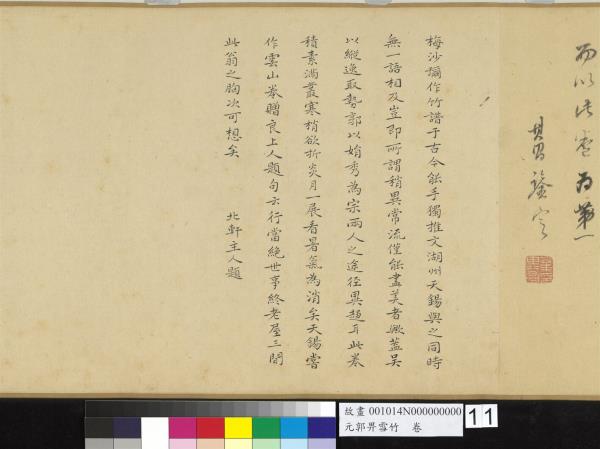 而以此卷為第一
其昌鑒定
梅沙彌作竹譜于古今能手獨推文湖州天錫與之同時
無一語相及豈即所謂稍異常流僅能盡美者歟蓋吳
以縱逸取勢郭以娟秀為宗兩人之途徑異趨耳此卷
積素滿叢寒梢欲折炎月一展看暑氣為消矣天錫嘗
作雲山卷贈良上人題句云行當絕世事終老屋三間
此翁之胸次可想矣
北軒主人題
故畫 001014N000000000
元郭畀雪竹 卷
11